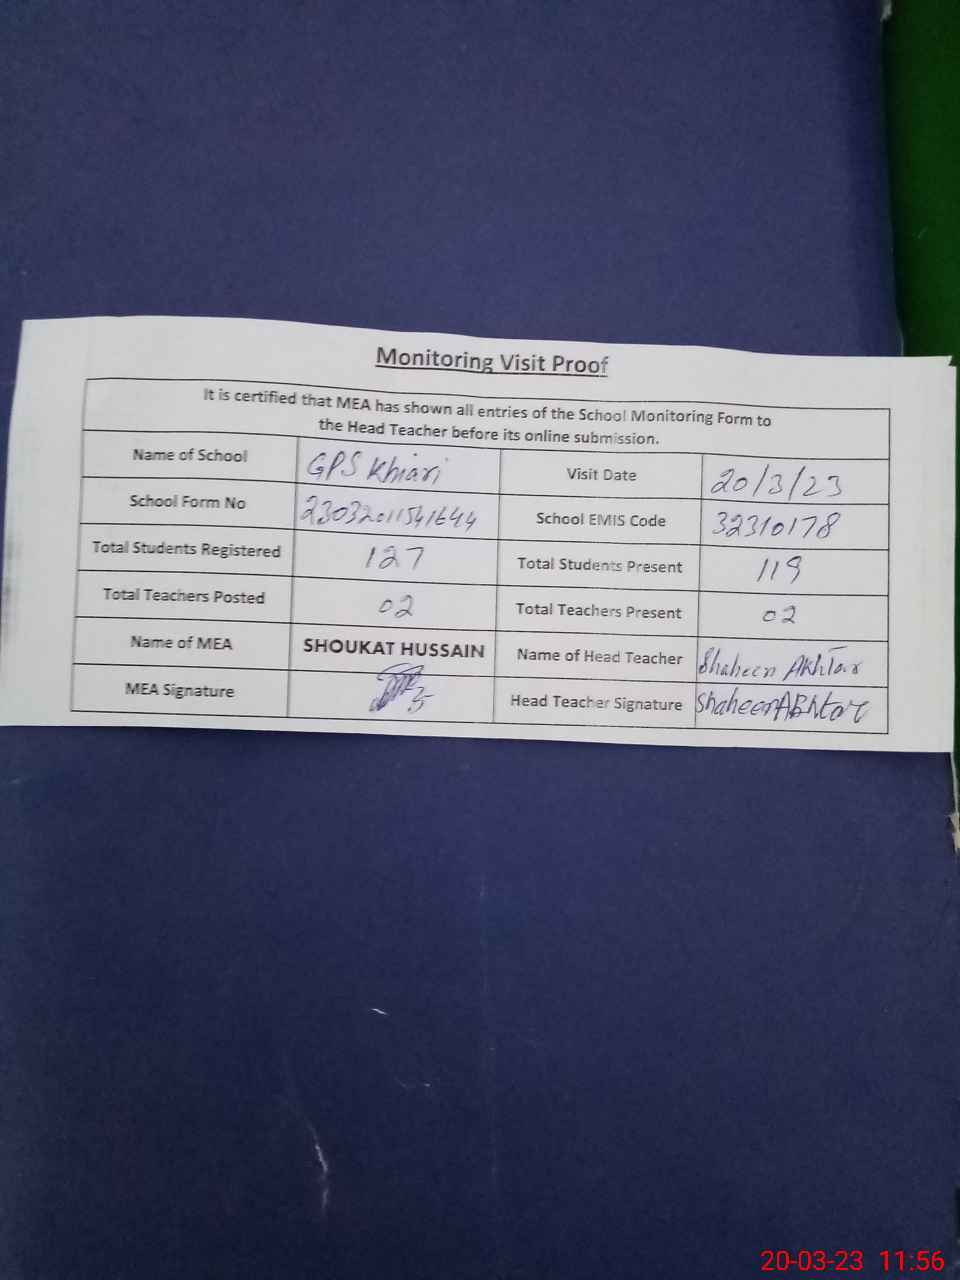 Monitoring Visit Proof
It is certified that MEA has shown all entries of the School Monitoring Form to
the Head Teacher before its online submission.
Name of School GPS Khiari Visit Date 20/3/23
School Form No 23032011541644 School EMIS Code 32310178
Total Students Registered 127 Total Students Present 119
Total Teachers Posted 02 Total Teachers Present 02
Name of MEA SHOUKAT HUSSAIN Name of Head Teacher Shaheen Akhtar
MEA Signature Head Teacher Signature Shaheen Akhtar
20-03-23 11:56